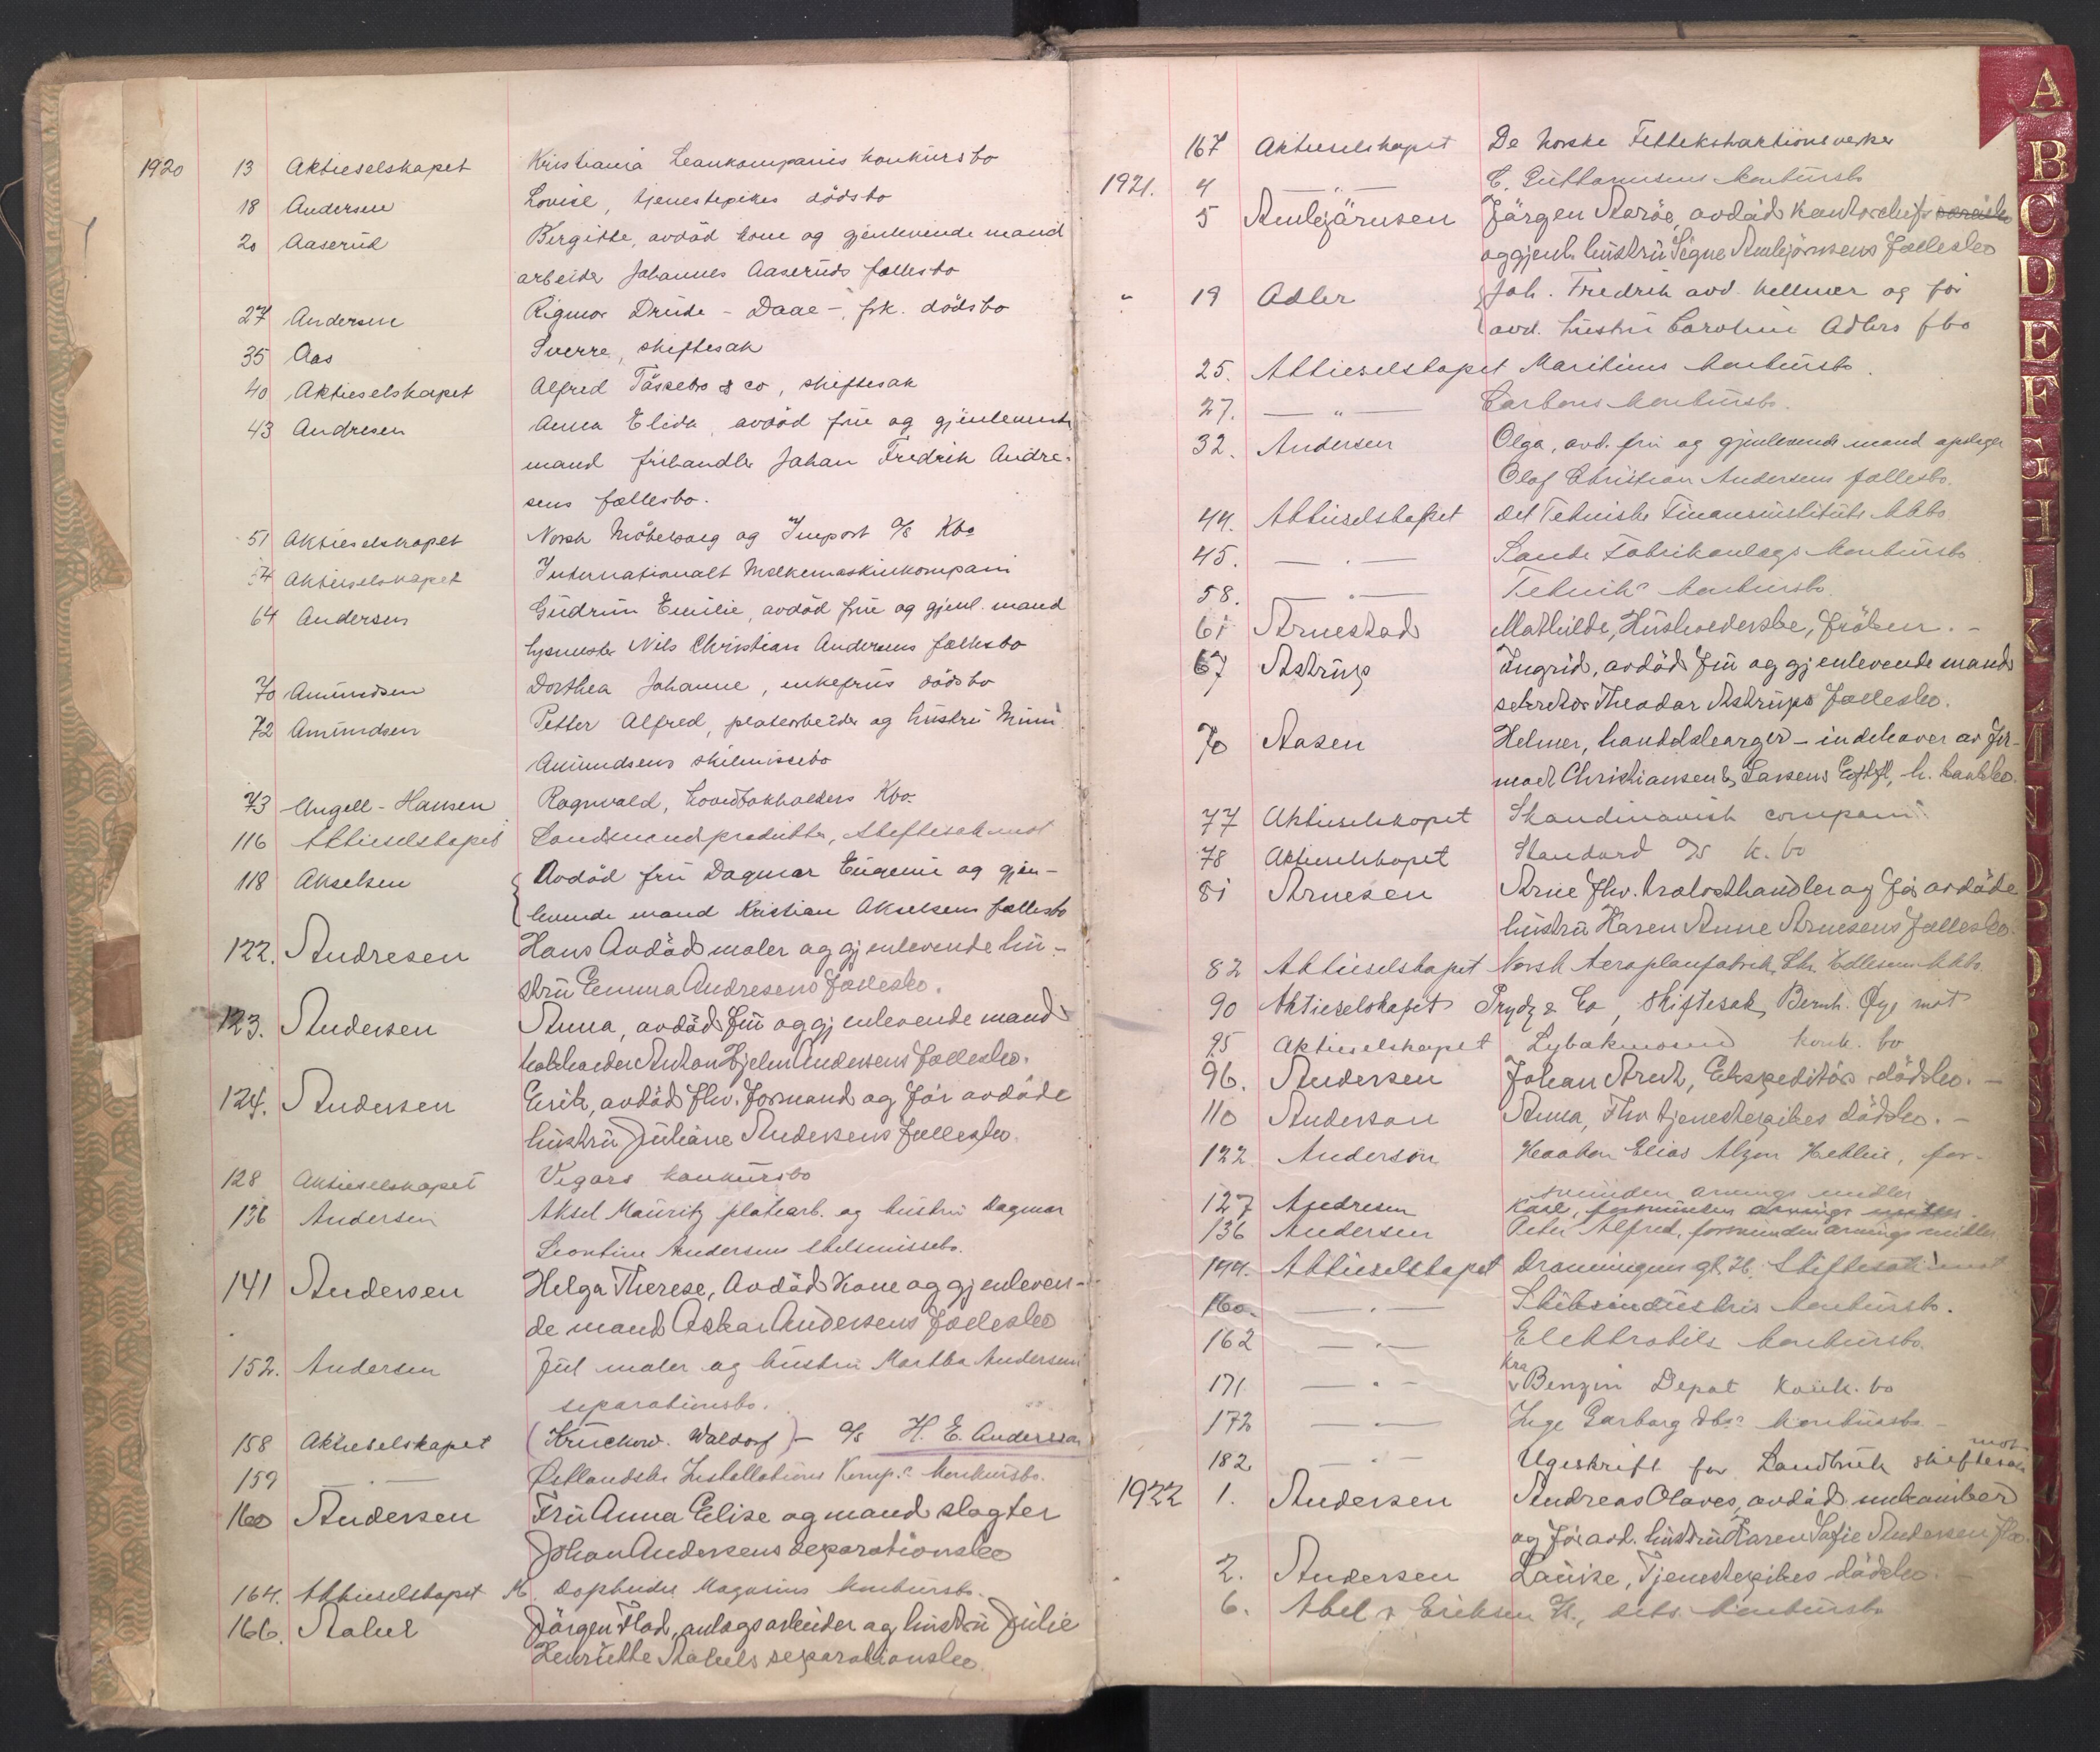 1920 13 Aktieselskapet Kristiania Leankompanis konkursbo
18 Andersen Lovise, tjenestepikes dödsbo
20 Aaserud Bergitte, avdöd kone og gjenlevende mand
arbeider Johannes Aaseruds fællesbo
27 Andersen Rigmor Drude - Daae -, frk. dödsbo
35 Aas Sverre, skiftesak
40 Aktieselskapet Alfred & co, skiftesak
43 Andresen Anna Elida, avdöd frue og gjenlevende
mand Johan Fredrik Andre-
sens fællesbo.
51 Aktieselskapet Norsk Möbelsalg og Import A/S Kbo
54 Aktieselskapet Internationalt Melkemaskinkompani
64 Andersen Gudrun Emilie, avdöd frue og gjenl. mand
Nils Christian Andersens fællesbo
70 Amundsen Dorthea Johanne, enkefrus dödsbo
72 Amundsen Petter Alfred, platearbeider og hustru Mimi
Amundsens skilmissebo
73 Angell-Hansen Ragnvald, Kbo.
116 Aktieselskapet Landsmandsprodukter, skiftesak mot
118 Akselsen Avdöd fru Dagmar Eugenie og gjen-
levende mand Kristian Akselsens fællesbo
122. Andresen Hans Avdöd maler og gjenlevende hu-
stru Emma Andresens fællesbo.
123. Andersen Anna, avdöd fru og gjenlevende mand
Anton Hjelm Andersens fællesbo.
124. Andersen Erik, avdöd fhv. formand og för avdöde
hustru Juliane Andersens fællesbo.
128 Aktieselskapet Vegars konkursbo
136 Andersen Aksel Mauritz platearb. og hustru Dagmar
Leontine Andersens skilsmissebo.
141 Andersen Helga Therese, Avdöd kone og gjenleven-
de mand Oskar Andersens fællesbo
152. Andersen Juel maler og hustru Martha Andersens
separationsbo.
158 Aktieselskapet (Kruckow. Waldorf) - A/S H. E. Anderssen
159 — . — Østlandske Installations Komp.s konkursbo.
160 Andersen Fru Anna Elise og mand slagter
Johan Andersens separationsbo
164. Aktieselskapet M. Magasins konkursbo.
166. Aabel Jörgen Flod, anlagsarbeider og hustru Julie
Henriette Aabels separationsbo.
167 Aktieselskapet De norske Fettekstraktionsverker
1921. 4 — " — C. konkursbo
5 Arnbjörnsen Jörgen Aaröe, avdöd kontorchef
og gjenl. hustru Signe Arnbjörnsens fællesbo
" 19 Adler Joh. Fredrik avd. kellner og för
avd. hustru Caroline Adlers fbo
25. Aktieselskapet Maritims konkursbo.
27. — " — Carbons konkursbo.
32. Andersen Olga, avd. fru og gjenlevende mand
Olaf Christian Andersens fællesbo.
44. Aktieselskapet Det Tekniske Finansinstituts kkbo
45. — . — Sande Fabrikanlegs konkursbo
58. — . — Tekniks konkursbo.
61 Arnestad Mathilde, Husholderske, fröken. -
67 Astrup Ingrid, avdöd fru og gjenlevende mand
sekretær Theodor Astrups fællesbo.
70 Aasen Helmer, - indehaver av fir-
maet Christiansen & Larsens Eftflg, h. konkbo.
77 Aktieselskapet Skandinavisk compani
78 Aktieselskapet Standard A/S k. bo
81 Arnesen Arne fhv. og för avdöde
hustru Karen Anne Arnesens fællesbo.
82 Aktieselskapet Norsk Aeroplanfabrik, kkbo.
90 Aktieselskapet Prydz & Co, skiftesak, Bernh. Øye mot
95 Aktieselskapet Lybakmosens konk. bo
96. Andersen Johan Arnt, Ekspeditörs dödsbo. -
110 Anderson Anna, Fhv. tjenestepikes dödsbo. -
122 Anderson Haakon Elias for-
munder arvings midler
127 Andresen Karl, formunder arvings midler
136 Andersen Peter Alfred, formunder arvings midler
144. Aktieselskapet Dronningens gt. 26, Skiftesak mot
160. — . — Skibsindustris konkursbo.
162 — . — Elektrobils konkursbo.
171 — . — Kra Benzin Depot konk. bo
172 — . — Inge Garborg konkursbo -
182 — . — Ugeskrift for Landbruk skiftesak mot
1922 1. Andersen Andreas Olaves, avdöd
og för avd. hustru Karen Sofie Andersen fbo.
2. Andersen Lauise, Tjenestepikes dödsbo. -
6. Abel & Eriksen konkursbo
A
B
C
D
E
F
G
H
I
J
K
L
M
N
O
P